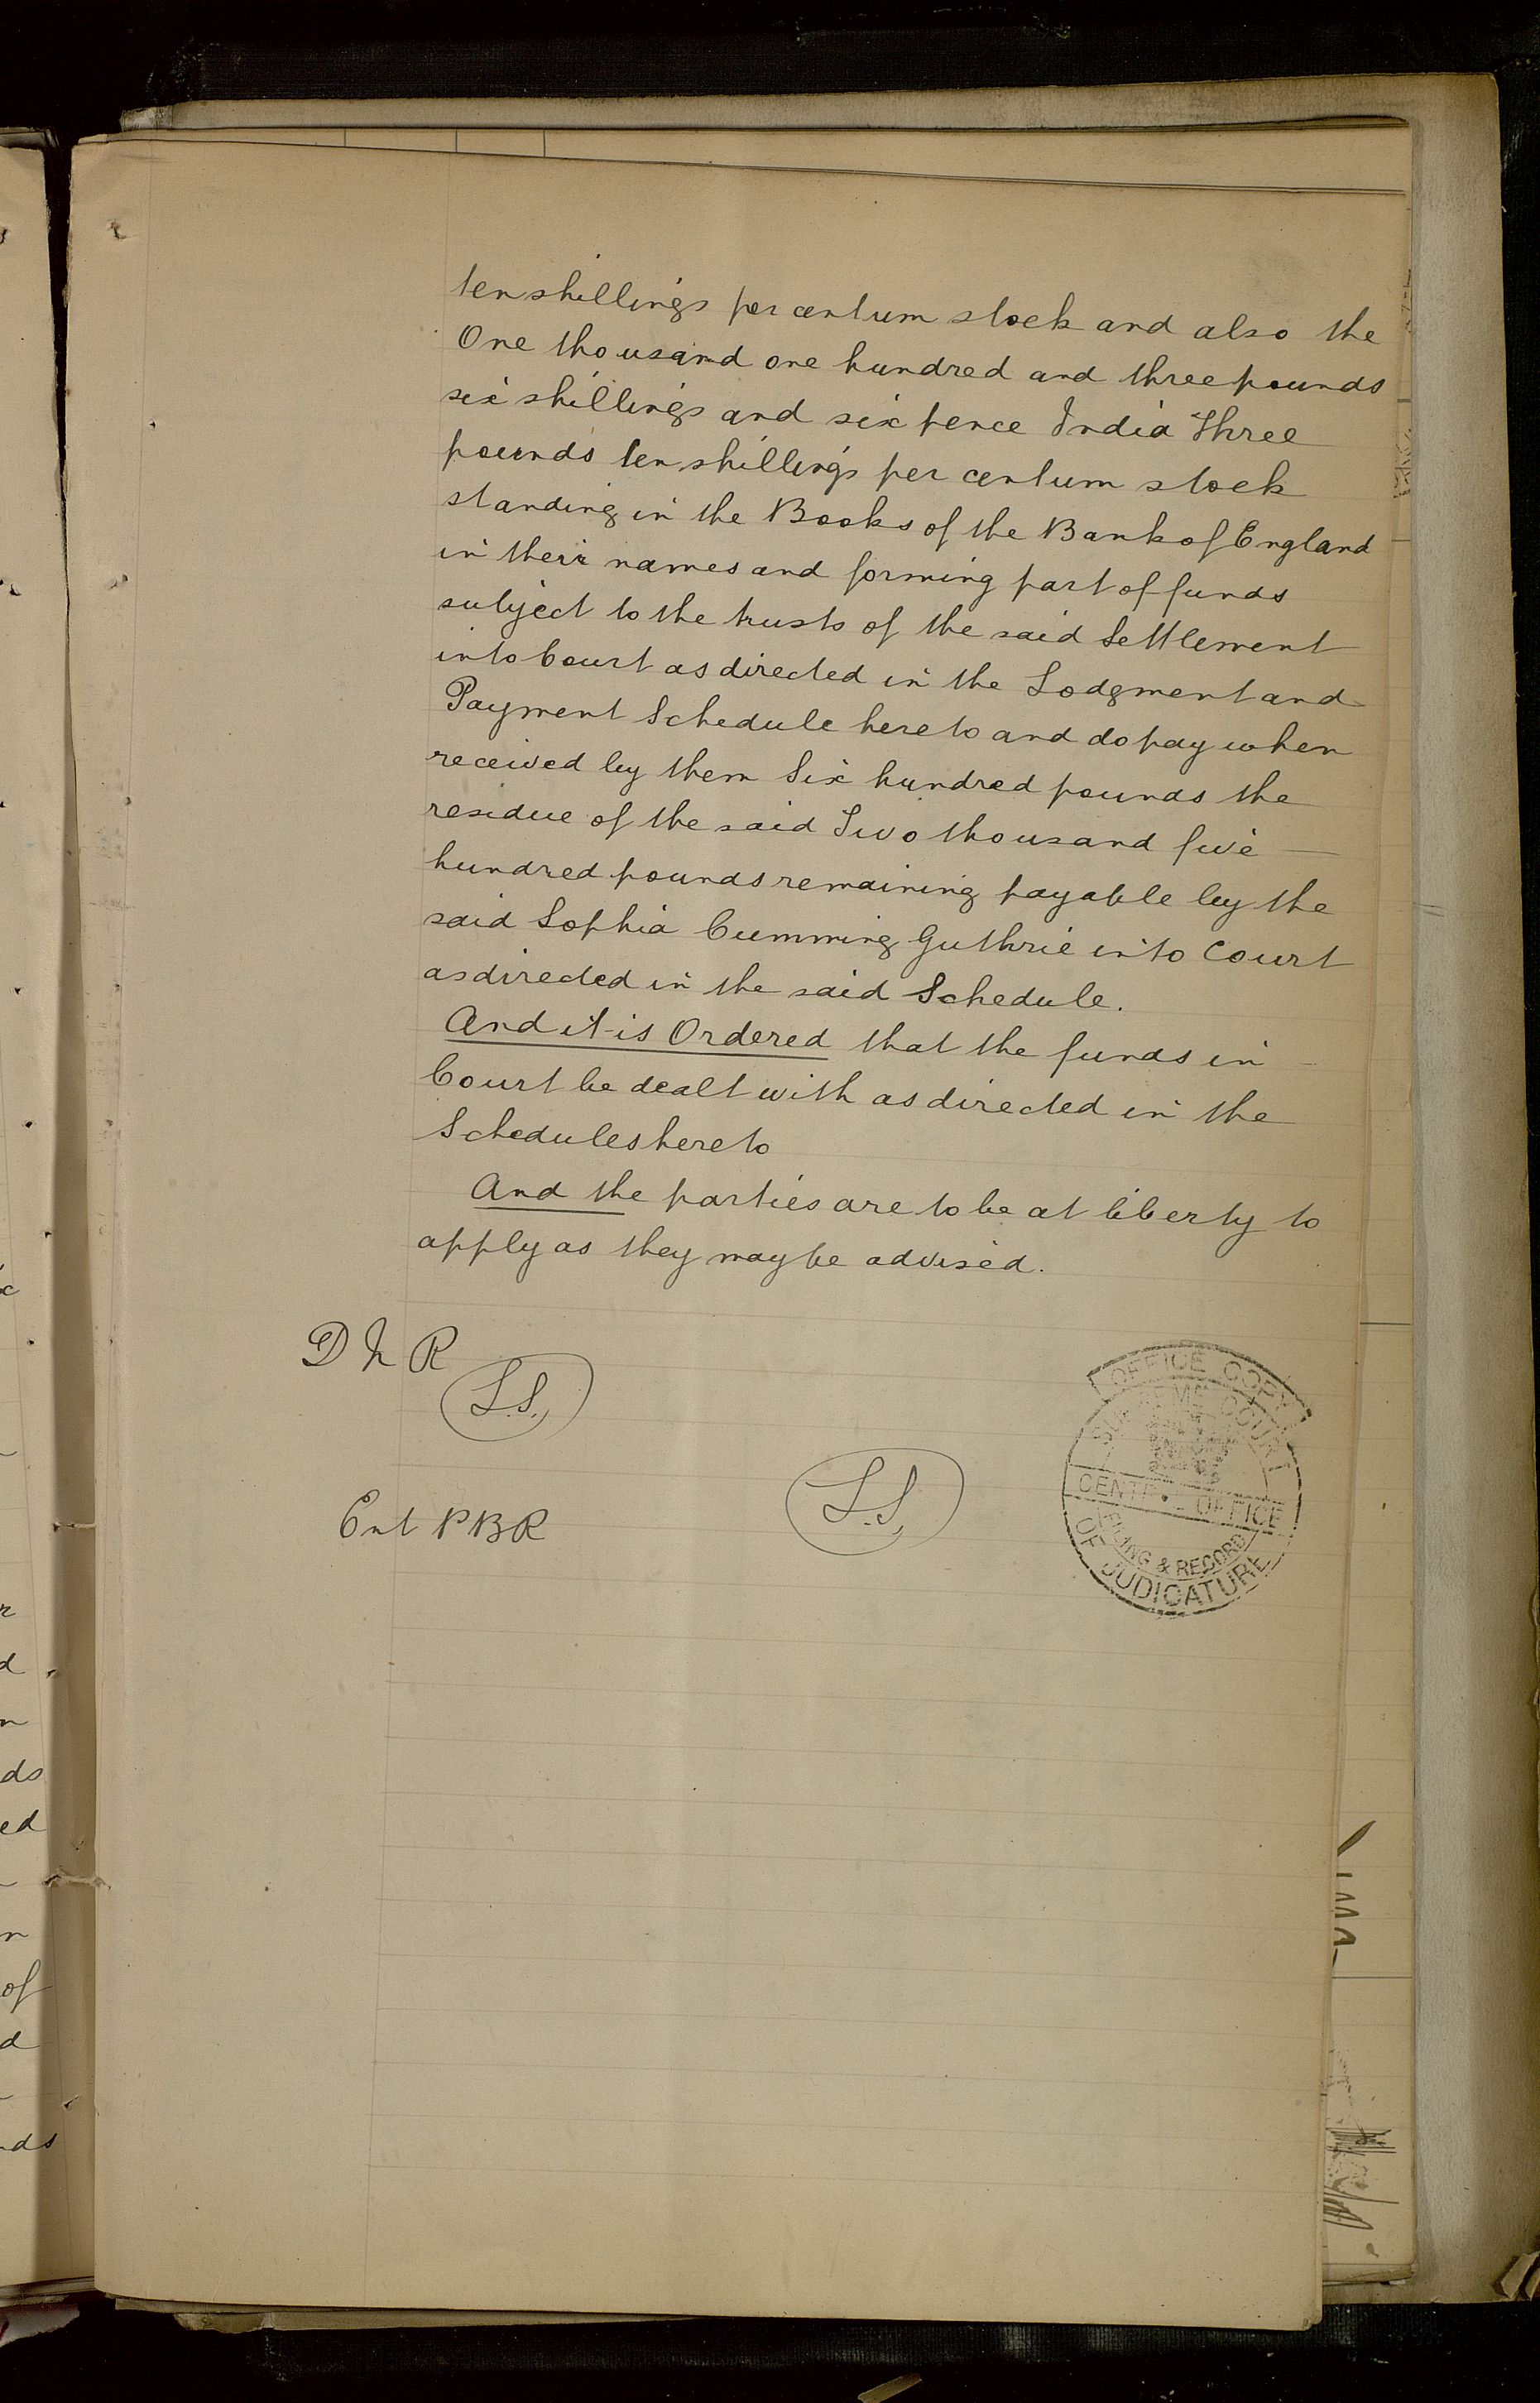 ten shillings per centum stock and also the
One thousand one hundred and three pounds
six shillings and six pence India Three
pounds ten shillings per centum stock
standing in the Books of the Bank of England
in their names and forming part of funds
subject to the trusts of the said Settlement
into Court as directed in the Lodgment and
Payment Schedule hereto and do pay when
received by them Six hundred pounds the
residue of the said Two thousand five
hundred pounds remaining payable by the
said Sophia Cumming Guthrie into Court
as directed in the said Schedule.
And it is Ordered that the funds in
Court be dealt with as directed in the
Schedules hereto
And the parties are to be at liberty to
apply as they may be advised.
D N R
L.S.
L.S.
Ent PBR
OFFICE COPY
SUPREME COURT
CENTRAL OFFICE
FILING & RECORD
OF JUDICATURE